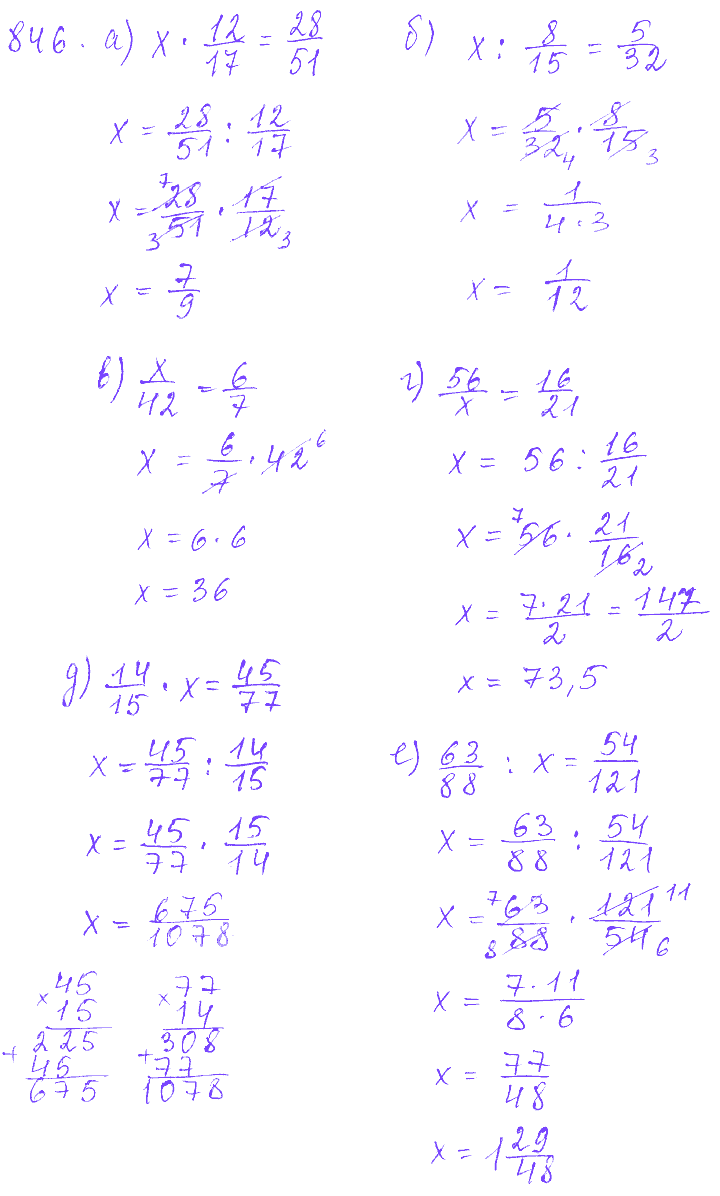 846. а) x · 12/17 = 28/51
x = 28/51 : 12/17
x = 7 28/51 3 · 17/12 3
x = 7/9
б) x : 8/15 = 5/32
x = 5/32 4 · 8/15 3
x = 1/4·3
x = 1/12
в) x/42 = 6/7
x = 6/7 · 42 6
x = 6·6
x = 36
г) 56/x = 16/21
x = 56 : 16/21
x = 7 56 · 21/16 2
x = 7·21/2 = 147/2
x = 73,5
д) 14/15 · x = 45/77
x = 45/77 : 14/15
x = 45/77 · 15/14
x = 675/1078
× 45
15
+ 225
45
675
× 77
14
+ 308
77
1078
е) 63/88 : x = 54/121
x = 63/88 : 54/121
x = 7 63/88 8 · 121/54 11 6
x = 7·11/8·6
x = 77/48
x = 1 29/48